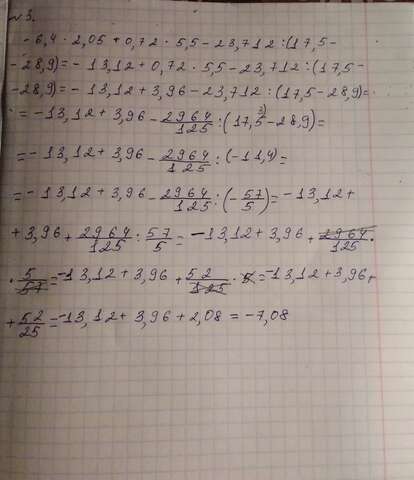 №3.
-6,4 · 2,05 + 0,72 · 5,5 - 23,712 : (17,5 -
- 28,9) = - 13,12 + 0,72 · 5,5 - 23,712 : (17,5 -
- 28,9) = - 13,12 + 3,96 - 23,712 : (17,5 - 28,9) =
= - 13,12 + 3,96 - 2964/125 : (17,5 - 28,9) =
= - 13,12 + 3,96 - 2964/125 : (-11,4) =
= - 13,12 + 3,96 - 2964/125 : (- 57/5) = - 13,12 +
+ 3,96 + 2964/125 : 57/5 = - 13,12 + 3,96 + 2964/125 ·
· 5/57 = - 13,12 + 3,96 + 52/125 · 5 = - 13,12 + 3,96 +
+ 52/25 = - 13,12 + 3,96 + 2,08 = -7,08